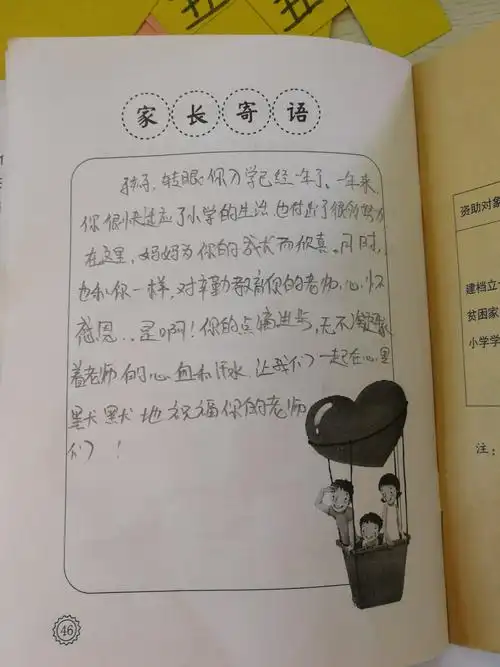 家长寄语
孩子，转眼你入学已经一年了，一年来，
你很快适应了小学的生活，也付出了很多努力
在这里，妈妈为你的成长而欣真。同时，
也和你一样，对辛勤教育你的老师，心怀
感恩．．是啊！你的点滴进步，无不凝聚
着老师的心血和汗水，让我们一起在心里
默默地祝福你的老师
们！
46
资助对象
建档立
贫困家
小学学
注：